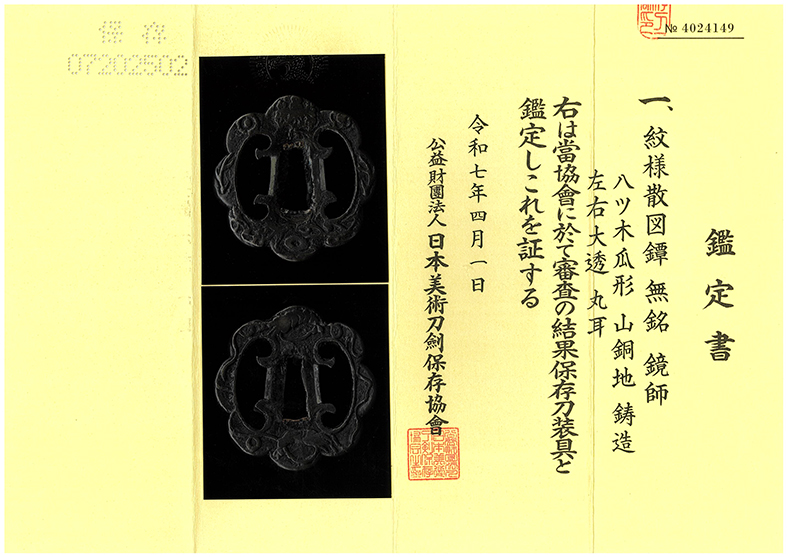 № 4024149
鑑定書
一、紋様散図鐔 無銘 鏡師
八ツ木瓜形 山銅地 鋳造
左右大透 丸耳
右は當協會に於て審査の結果保存刀装具と
鑑定しこれを証する
令和七年四月一日
公益財團法人 日本美術刀剣保存協會
保存
07202502